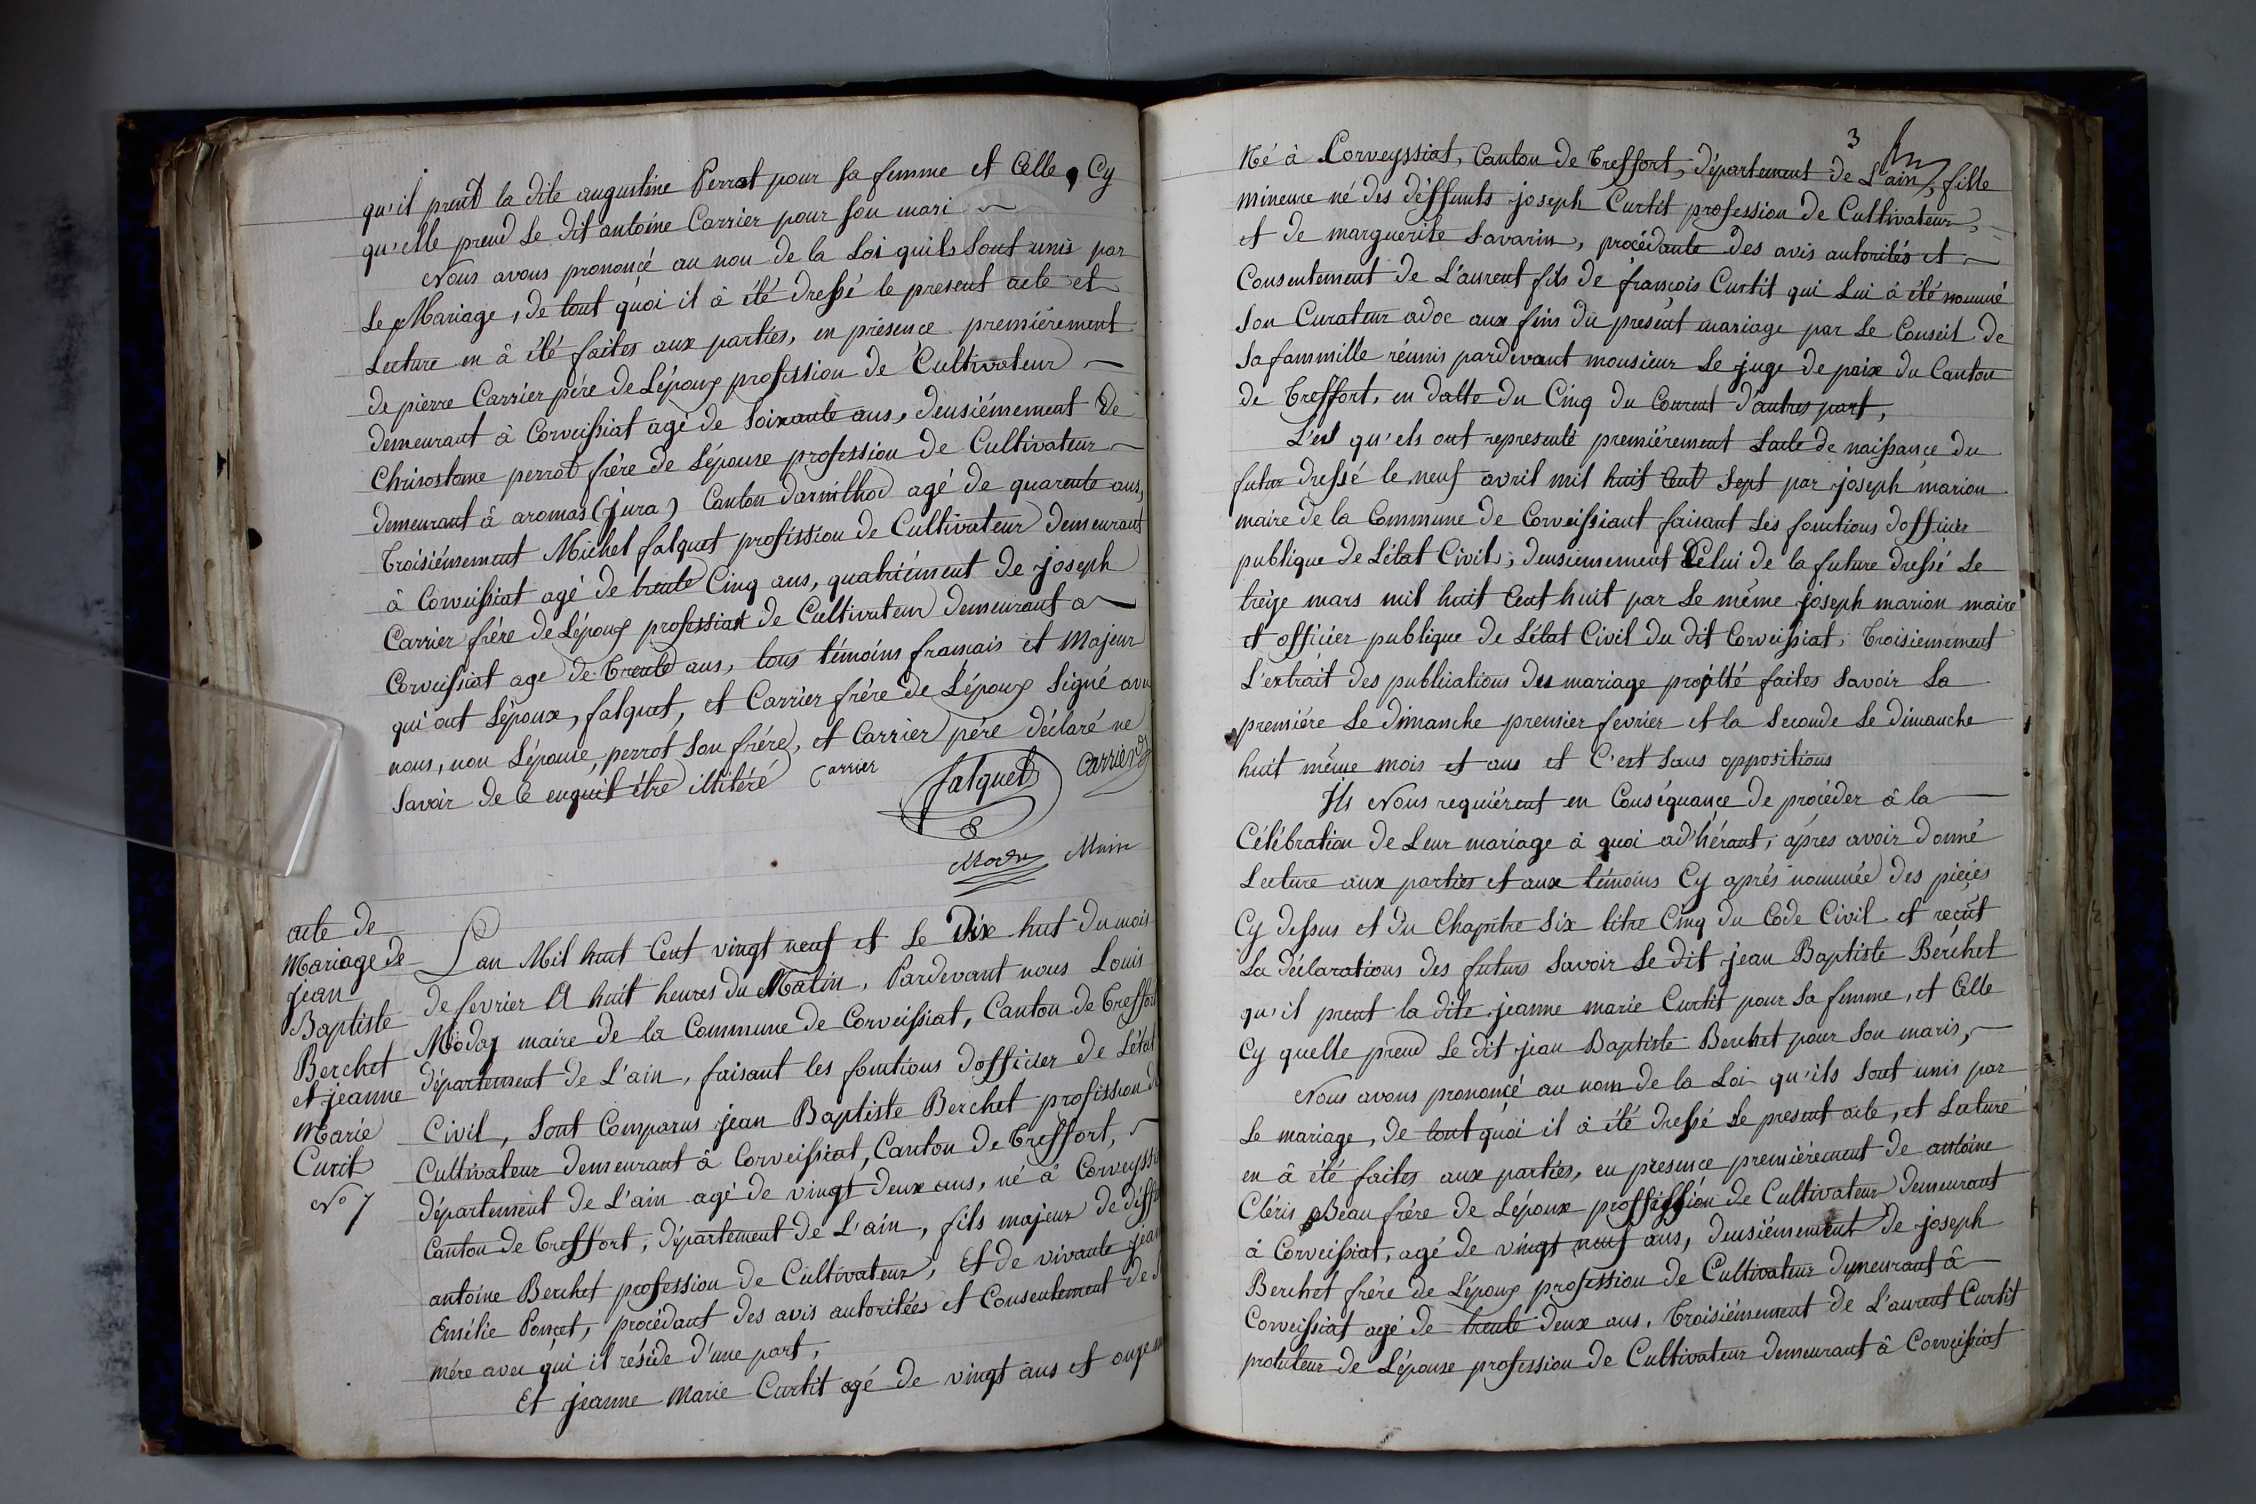 qu'il prent la dite augustine Perrot pour sa femme et Celle, Cy
qu'elle prend Le dit antoine Carrier pour son mari
Nous avons prononcé au nou de la Loi quils sont unis par
Le Mariage, de tout quoi il à été dressé le present acte et
Lecture en â été faites aux parties, en présence premiérement
de pierre Carrier pére de Lépoux profession de Cultivateur
demeurant â Corveissiat agé de soixante ans, deusiémement de
Chrisostome perrot frére de Lépouse profession de Cultivateur
demeurant â aromas (jura) Canton darinthod agé de quarente ans,
Troisiémement Michel falquet profission de Cultivateur demeurant
â Corveissiat agé de trente Cinq ans, quatriément de joseph
Carrier frére de Lépoux profession de Cultivateur demeurant a
Corveissiat age de Trente ans, tous témoins francais et Majeur
qui ont Lépoux, falquet, et Carrier frére de Lépoux signé avec
nous, non Lépouse, perrot son frére, et Carrier pére déclaré ne
savoir de ce enquit être illitéré Carrier
falquet
Carrier
Moday Maire
acte de
Mariage de
jean
Baptiste
Berchet
et jeanne
Marie
Curtit
N° 7
Lan Mil huit Cent vingt neuf et Le Dix huit du mois
de fevrier A huit heures du Matin, Pardevant nous Louis
Moday maire de la Commune de Corveissiat, Canton de Treffort
département de L'ain, faisant les fonctions dofficier de Létat
Civil, sont Comparus jean Baptiste Berchet profission de
Cultivateur demeurant â Corveissiat, Canton de Treffort,
département de L'ain agé de vingt deux ans, né â Corveyssi
Canton de Treffort, département de L'ain, fils majeur de déffu
antoine Berchet profession de Cultivateur, et de vivante jean
Emélie Poncet, procédant des avis autoritées et Consentement de s
mére avec qui il réside d'une part,
Et jeanne Marie Curtit agé de vingt ans et onze m
3
Né à Corveyssiat, Canton de Treffort, département de L'ain, fille
mineure né des déffunts joseph Curtit profession de Cultivateur,
et de marguerite Savarin, procédante des avis autorités et
Consentement de L'aurent fils de françois Curtit qui Lui â été nommé
son Curateur adoc aux fins du présent mariage par Le Conseil de
sa fammille réunis pardevant monsieur Le juge de paix du Canton
de Treffort, en datte du Cinq du Courent d'autres part,
L'es qu'els ont representé premiérement Lacte de naissance du
futur dressé le neuf avril mil huit Cent sept par joseph marion
maire de la Commune de Corveissiant faisant Les fonctions dofficier
publique de Létat Civil, deusiemement Celui de la future dressé Le
treize mars mil huit Cent huit par Le même joseph marion maire
et officier publique de Létat Civil du dit Corveissiat, Troisiemement
L'extrait des publications des mariage projetté faites savoir La
premiére Le dimanche premier fevrier et la seconde Le dimanche
huit même mois et ans et C'est sans oppositions
Ils Nous requiérent en Conséquance de procéder â la
Célébration de Leur mariage à quoi ad'hérant, aprés avoir donné
Lecture aux parties et aux témoins Cy aprés nommée des piéçes
Cy dessus et du Chapitre six titre Cinq du Code Civil et reçut
La déclarations des futurs savoir Le dit jean Baptiste Berchet
qu'il prent la dite jeanne marie Curtit pour sa femme, et Celle
Cy quelle prend Le dit jean Baptiste Berchet pour son maris,
Nous avons prononcé au nom de la Loi qu'ils sont unis par
Le mariage, de tout quoi il à été dressé Le present acte, et Lecture
en â été faites aux parties, en presence premiérement de antoine
Cléris Beau frére de Lépoux proffession de Cultivateur demeurant
â Corveissiat, agé de vingt neuf ans, deusiémement de joseph
Berchet frére de Lépoux profession de Cultivateur demeurant â
Corveissiat agé de trente deux ans, Troisiémement de L'aurent Curtit
protuteur de Lépouse profession de Cultivateur demeurant â Corveissiat